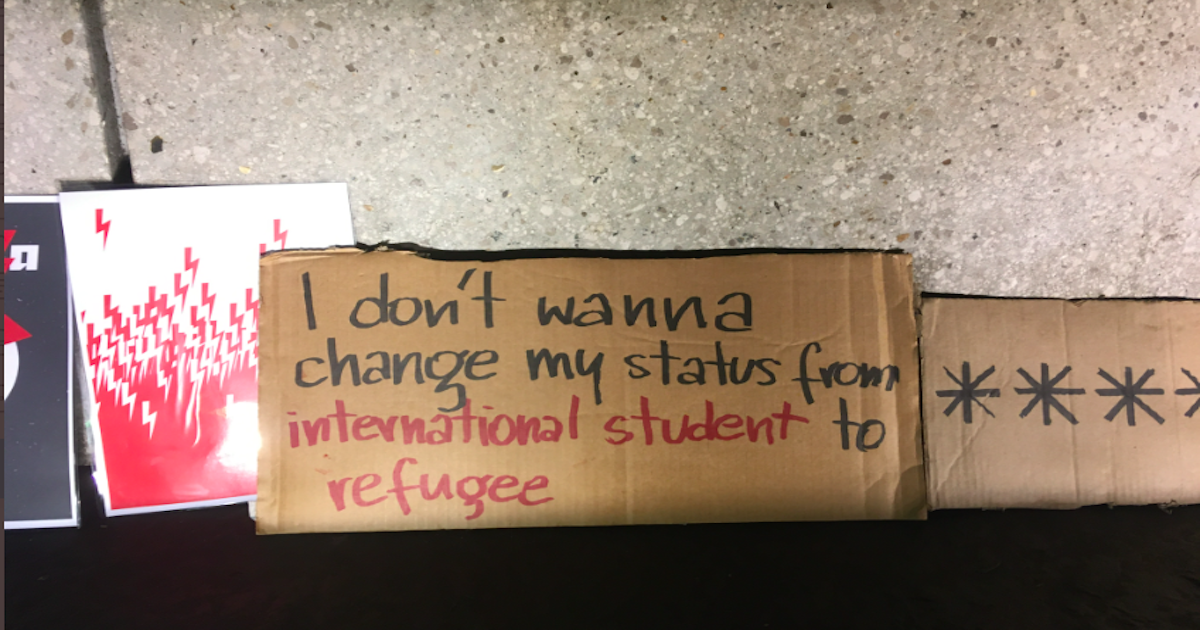 I don't wanna
change my status from
international student to
refugee
****